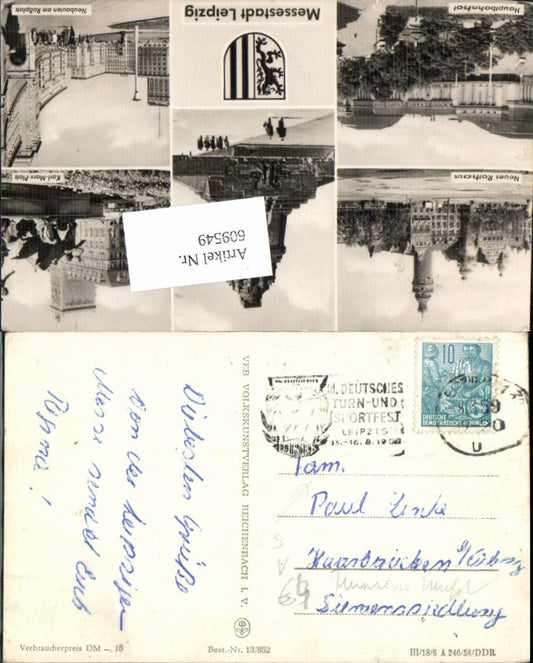 Messestadt Leipzig
Hauptbahnhof
Neubauten am Roßplatz
Neues Rathaus
Karl-Marx-Platz
Artikel Nr.
609549
Die besten Grüße
von der Leipziger
Messe sendet Euch
VEB VOLKSKUNSTVERLAG REICHENBACH I. V.
III. DEUTSCHES
TURN-UND
SPORTFEST
LEIPZIG
13.-16.8.1959
10
DEUTSCHE
DEMOKRATISCHE REPUBLIK
Fam.
Paul Linke
Saarbrücken
Siemenssiedlung
Verbraucherpreis DM -. 15
Best.-Nr. 13/852
III/18/6 A 246/58/DDR